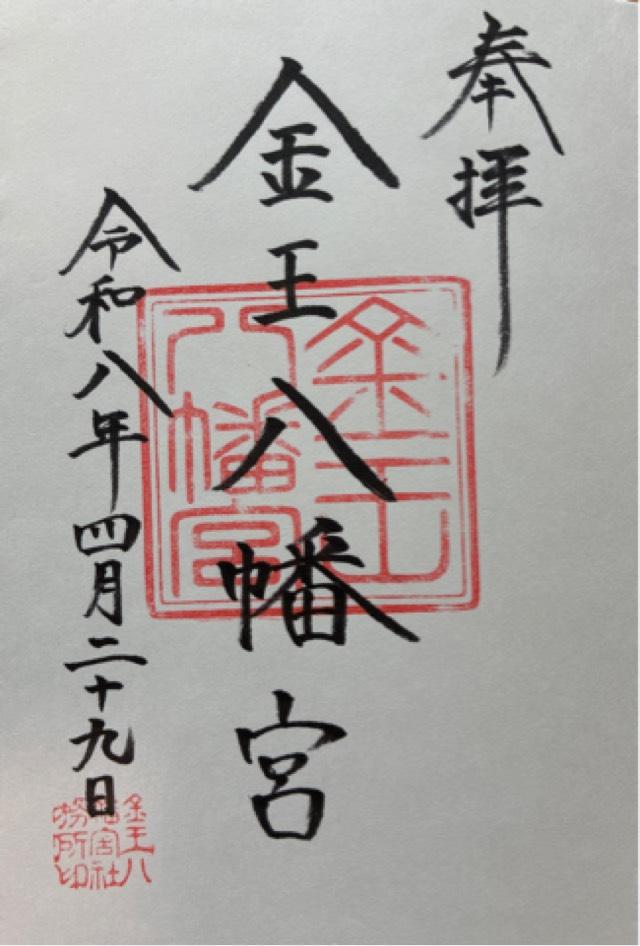 奉拝
金王八幡宮
令和八年四月二十九日
金王八幡宮
金王八幡宮社務所印